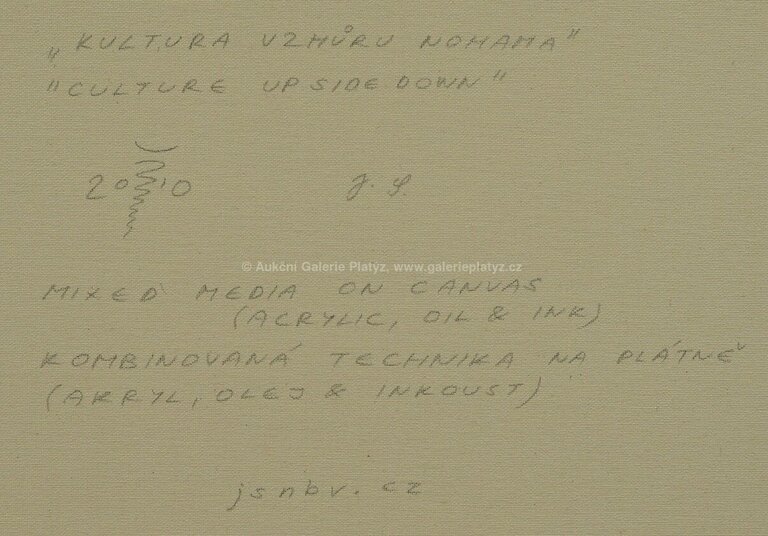 „KULTURA VZHŮRU NOHAMA"
"CULTURE UPSIDE DOWN"
2010 J. S.
© Aukční Galerie Platýz, www.galerieplatyz.cz
MIXED MEDIA ON CANVAS
(ACRYLIC, OIL & INK)
KOMBINOVANÁ TECHNIKA NA PLÁTNĚ
(AKRYL, OLEJ & INKOUST)
jsnbv.cz